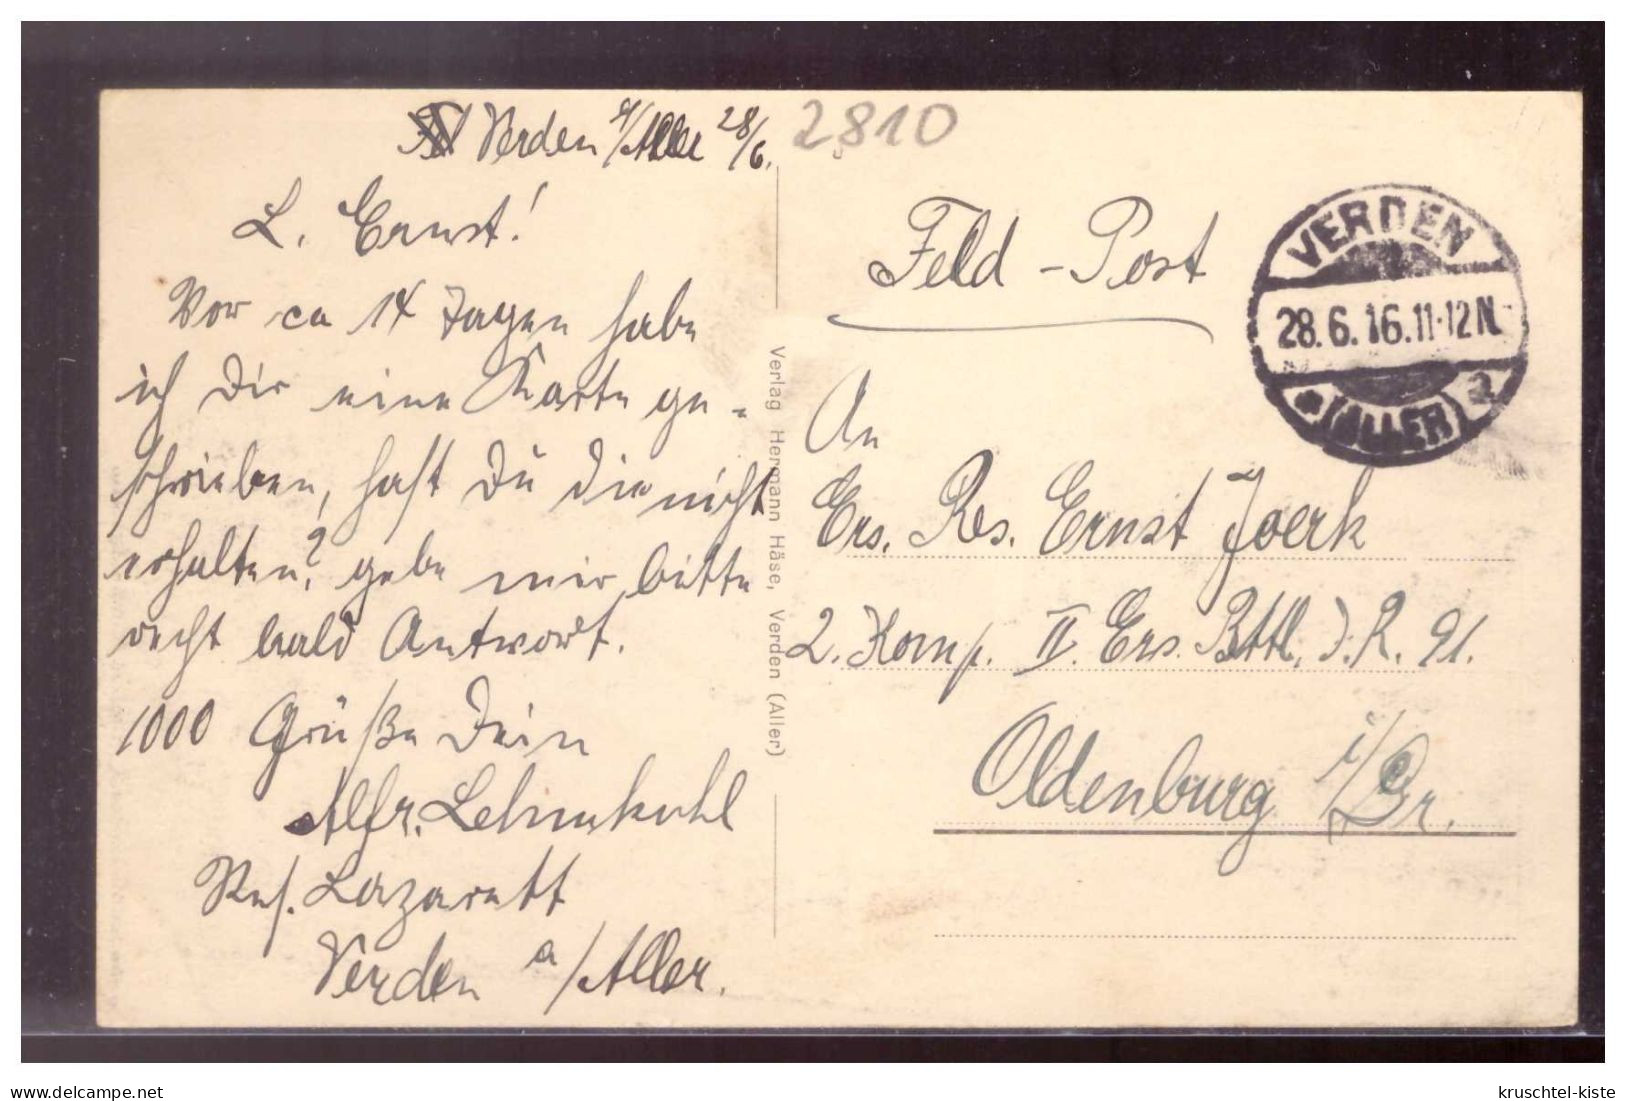 Verden a/Aller 28/6.
2810
L. Ernst!
Vor ca 14 Tagen habe
ich Dir eine Karte ge-
schrieben, hast Du die nicht
erhalten? gebe mir bitte
recht bald Antwort.
1000 Grüße Dein
Alfr. Lehmkuhl
Res. Lazarett
Verden a/Aller.
Verlag Hermann Häse, Verden (Aller)
Feld-Post
VERDEN
28.6.16.11-12N.
* (ALLER) a
An
Ers. Res. Ernst Joerk
2. Komp. II. Ers. Bttl. I. R. 91.
Oldenburg i/Gr.
delcampe.net
kruschtel-kiste